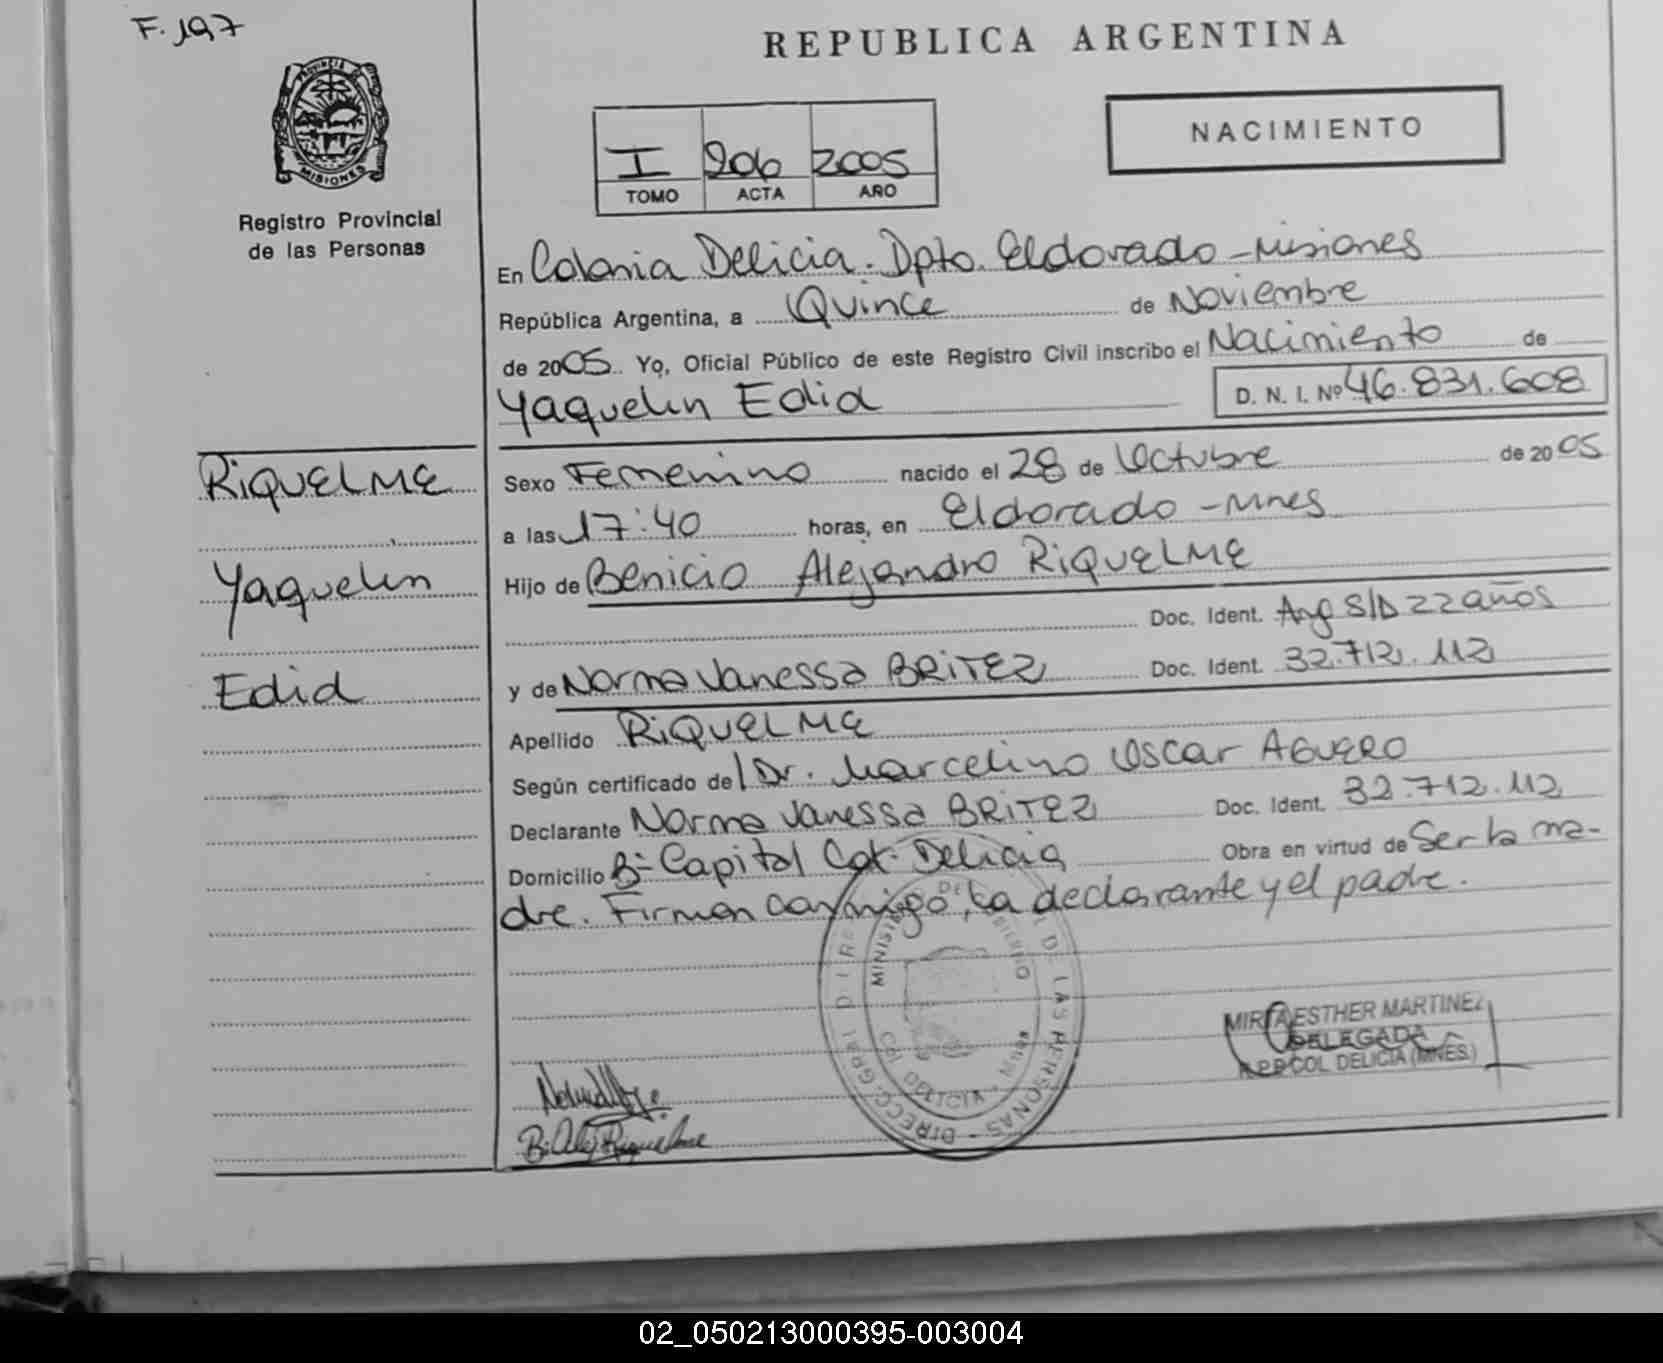 F. 197
REPUBLICA ARGENTINA
PROVINCIA DE
MISIONES
Registro Provincial
de las Personas
I 206 2005
TOMO ACTA AÑO
NACIMIENTO
En Colonia Delicia. Dpto. Eldorado - Misiones
República Argentina, a Quince de Noviembre
de 2005. Yo, Oficial Público de este Registro Civil inscribo el Nacimiento de
Yaquelin Edid D. N. I. Nº 46.831.608
RIQUELME
Yaquelin
Edid
Sexo Femenino nacido el 28 de Octubre de 2005
a las 17:40 horas, en Eldorado - Mnes
Hijo de Benicio Alejandro RIQUELME
Doc. Ident. Arg S/D 22 años
y de Norma Vanessa BRITEZ Doc. Ident. 32.712.112
Apellido RIQUELME
Según certificado del Dr. Marcelino Oscar AGUERO
Declarante Norma Vanessa BRITEZ Doc. Ident. 32.712.112
Domicilio Bº Capital Col. Delicia Obra en virtud de Ser la ma-
dre. Firman conmigo, la declarante y el padre.
MIRTA ESTHER MARTINEZ
DELEGADA
R.P.P. COL DELICIA (MNES.)
DIRECC. GRAL DE LAS PERSONAS
COL DELICIA
B. Alej Riquelme
02_050213000395-003004